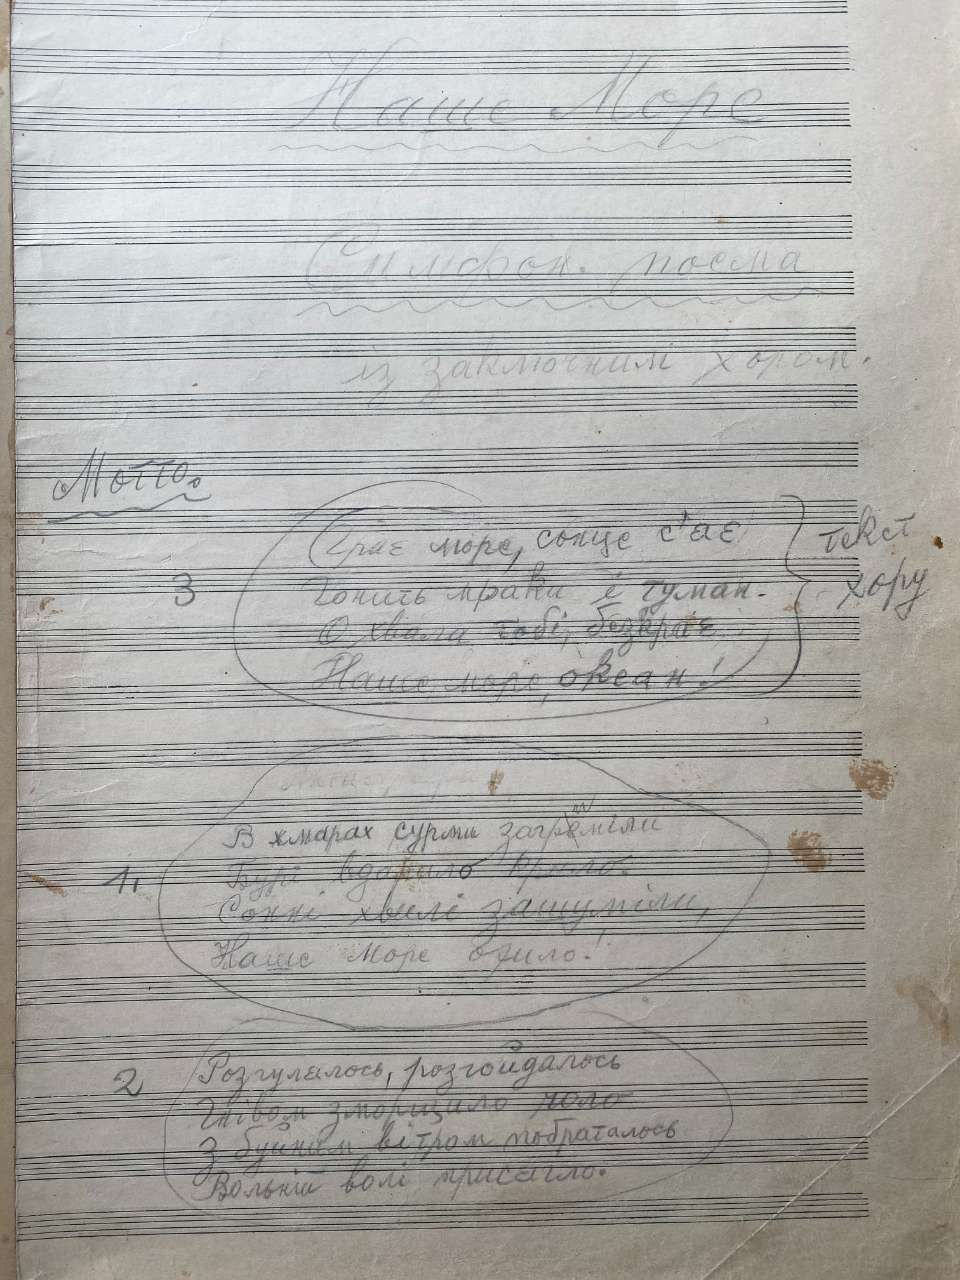 Наше Море
Симфон. поема
із заключним хором.
Мотто.
Грає море, сонце с'ає
3
Гонить мраки й туман.
О хвала тобі, безкрає
Наше море, океан!
текст
хору
В хмарах сурми загреміли
1.
Бурі вдарило крило.
Сонні хвилі зашуміли,
Наше море ожило!
2
Розгулялось, розгойдалось
Гнівом зморщило чоло
З буйним вітром побраталось
Вольній волі присягло.